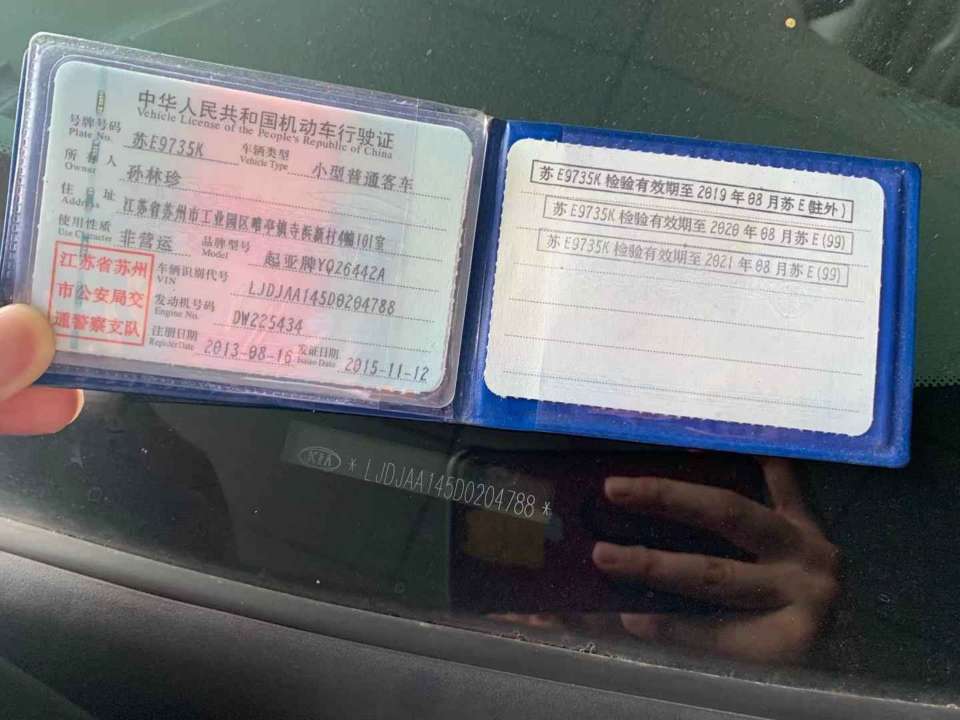 中华人民共和国机动车行驶证
Vehicle License of the People's Republic of China
号牌号码 苏E9735K 车辆类型 小型普通客车
Plate No. Vehicle Type
所有人 孙林珍
Owner
住址 江苏省苏州市工业园区唯亭镇寺浜新村4幢101室
Address
使用性质 非营运 品牌型号 起亚牌YQZ6442A
Use Character Model
江苏省苏州
市公安局交
通警察支队
车辆识别代号 LJDJAA145D0204788
VIN
发动机号码 DW225434
Engine No.
注册日期 2013-08-16 发证日期 2015-11-12
Register Date Issue Date
苏E9735K 检验有效期至2019年08月苏E(驻外)
苏E9735K 检验有效期至2020年08月苏E(99)
苏E9735K 检验有效期至2021年08月苏E(99)
KIA * LJDJAA145D0204788 *